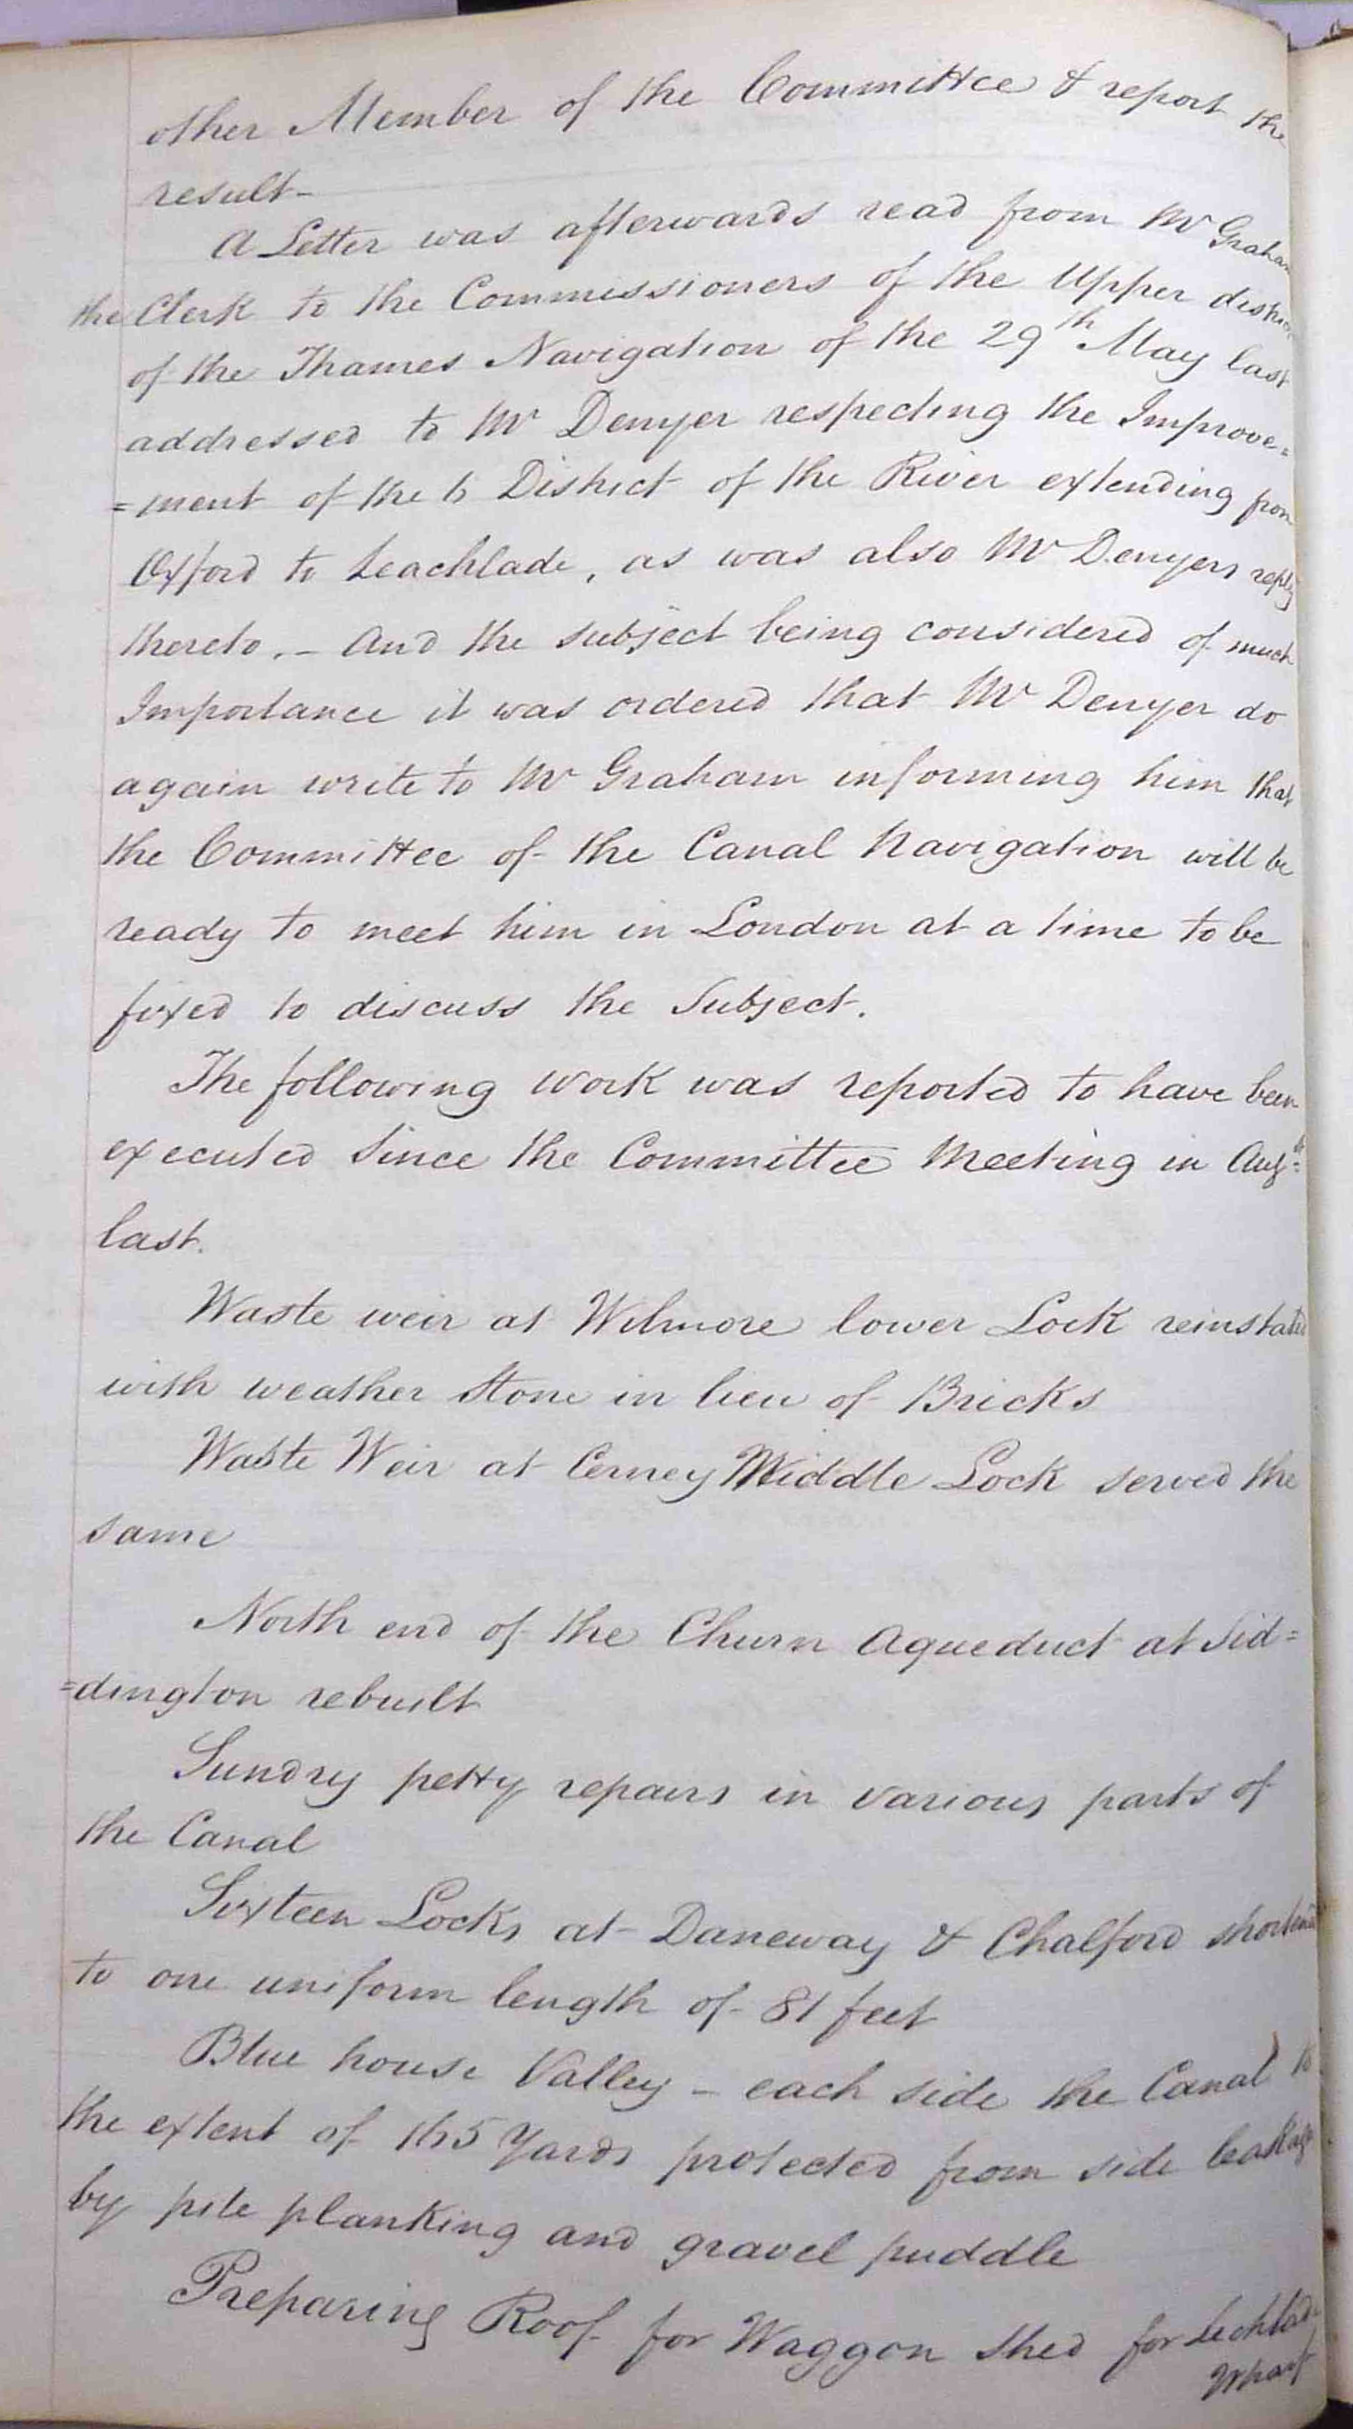 other Member of the Committee & report the
result –
A Letter was afterwards read from Mr Graham
the Clerk to the Commissioners of the Upper district
of the Thames Navigation of the 29th May last
addressed to Mr Denyer respecting the Improve=
=ment of the 6 District of the River extending from
Oxford to Leachlade, as was also Mr Denyers reply
thereto. – And the subject being considered of much
Importance it was ordered that Mr Denyer do
again write to Mr Graham informing him that
the Committee of the Canal Navigation will be
ready to meet him in London at a time to be
fixed to discuss the Subject.
The following work was reported to have been
executed since the Committee Meeting in Augt
last.
Waste weir at Wilmore lower Lock reinstated
with weather Stone in lieu of Bricks
Waste Weir at Cerney Middle Lock served the
same
North end of the Churn Aqueduct at Sid=
=dington rebuilt
Sundry petty repairs in various parts of
the Canal
Sixteen Locks at Daneway & Chalford shortened
to one uniform length of 81 feet
Blue house Valley – each side the Canal to
the extent of 165 Yards protected from side leakage
by pile planking and gravel puddle
Preparing Roof for Waggon Shed for Lechlade
Wharf